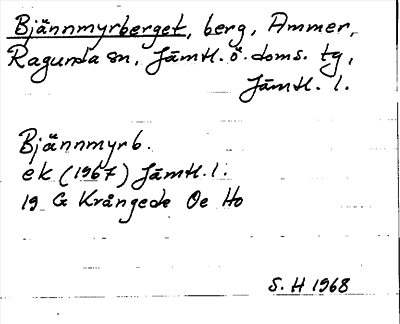 Bjännmyrberget, berg, Ammer,
Ragunda sn, Jämtl. ö. doms. tg,
Jämtl. l.
Bjännmyrb.
ek (1967) Jämtl. l.
19 G Krångede Oe Ho
S. H 1968